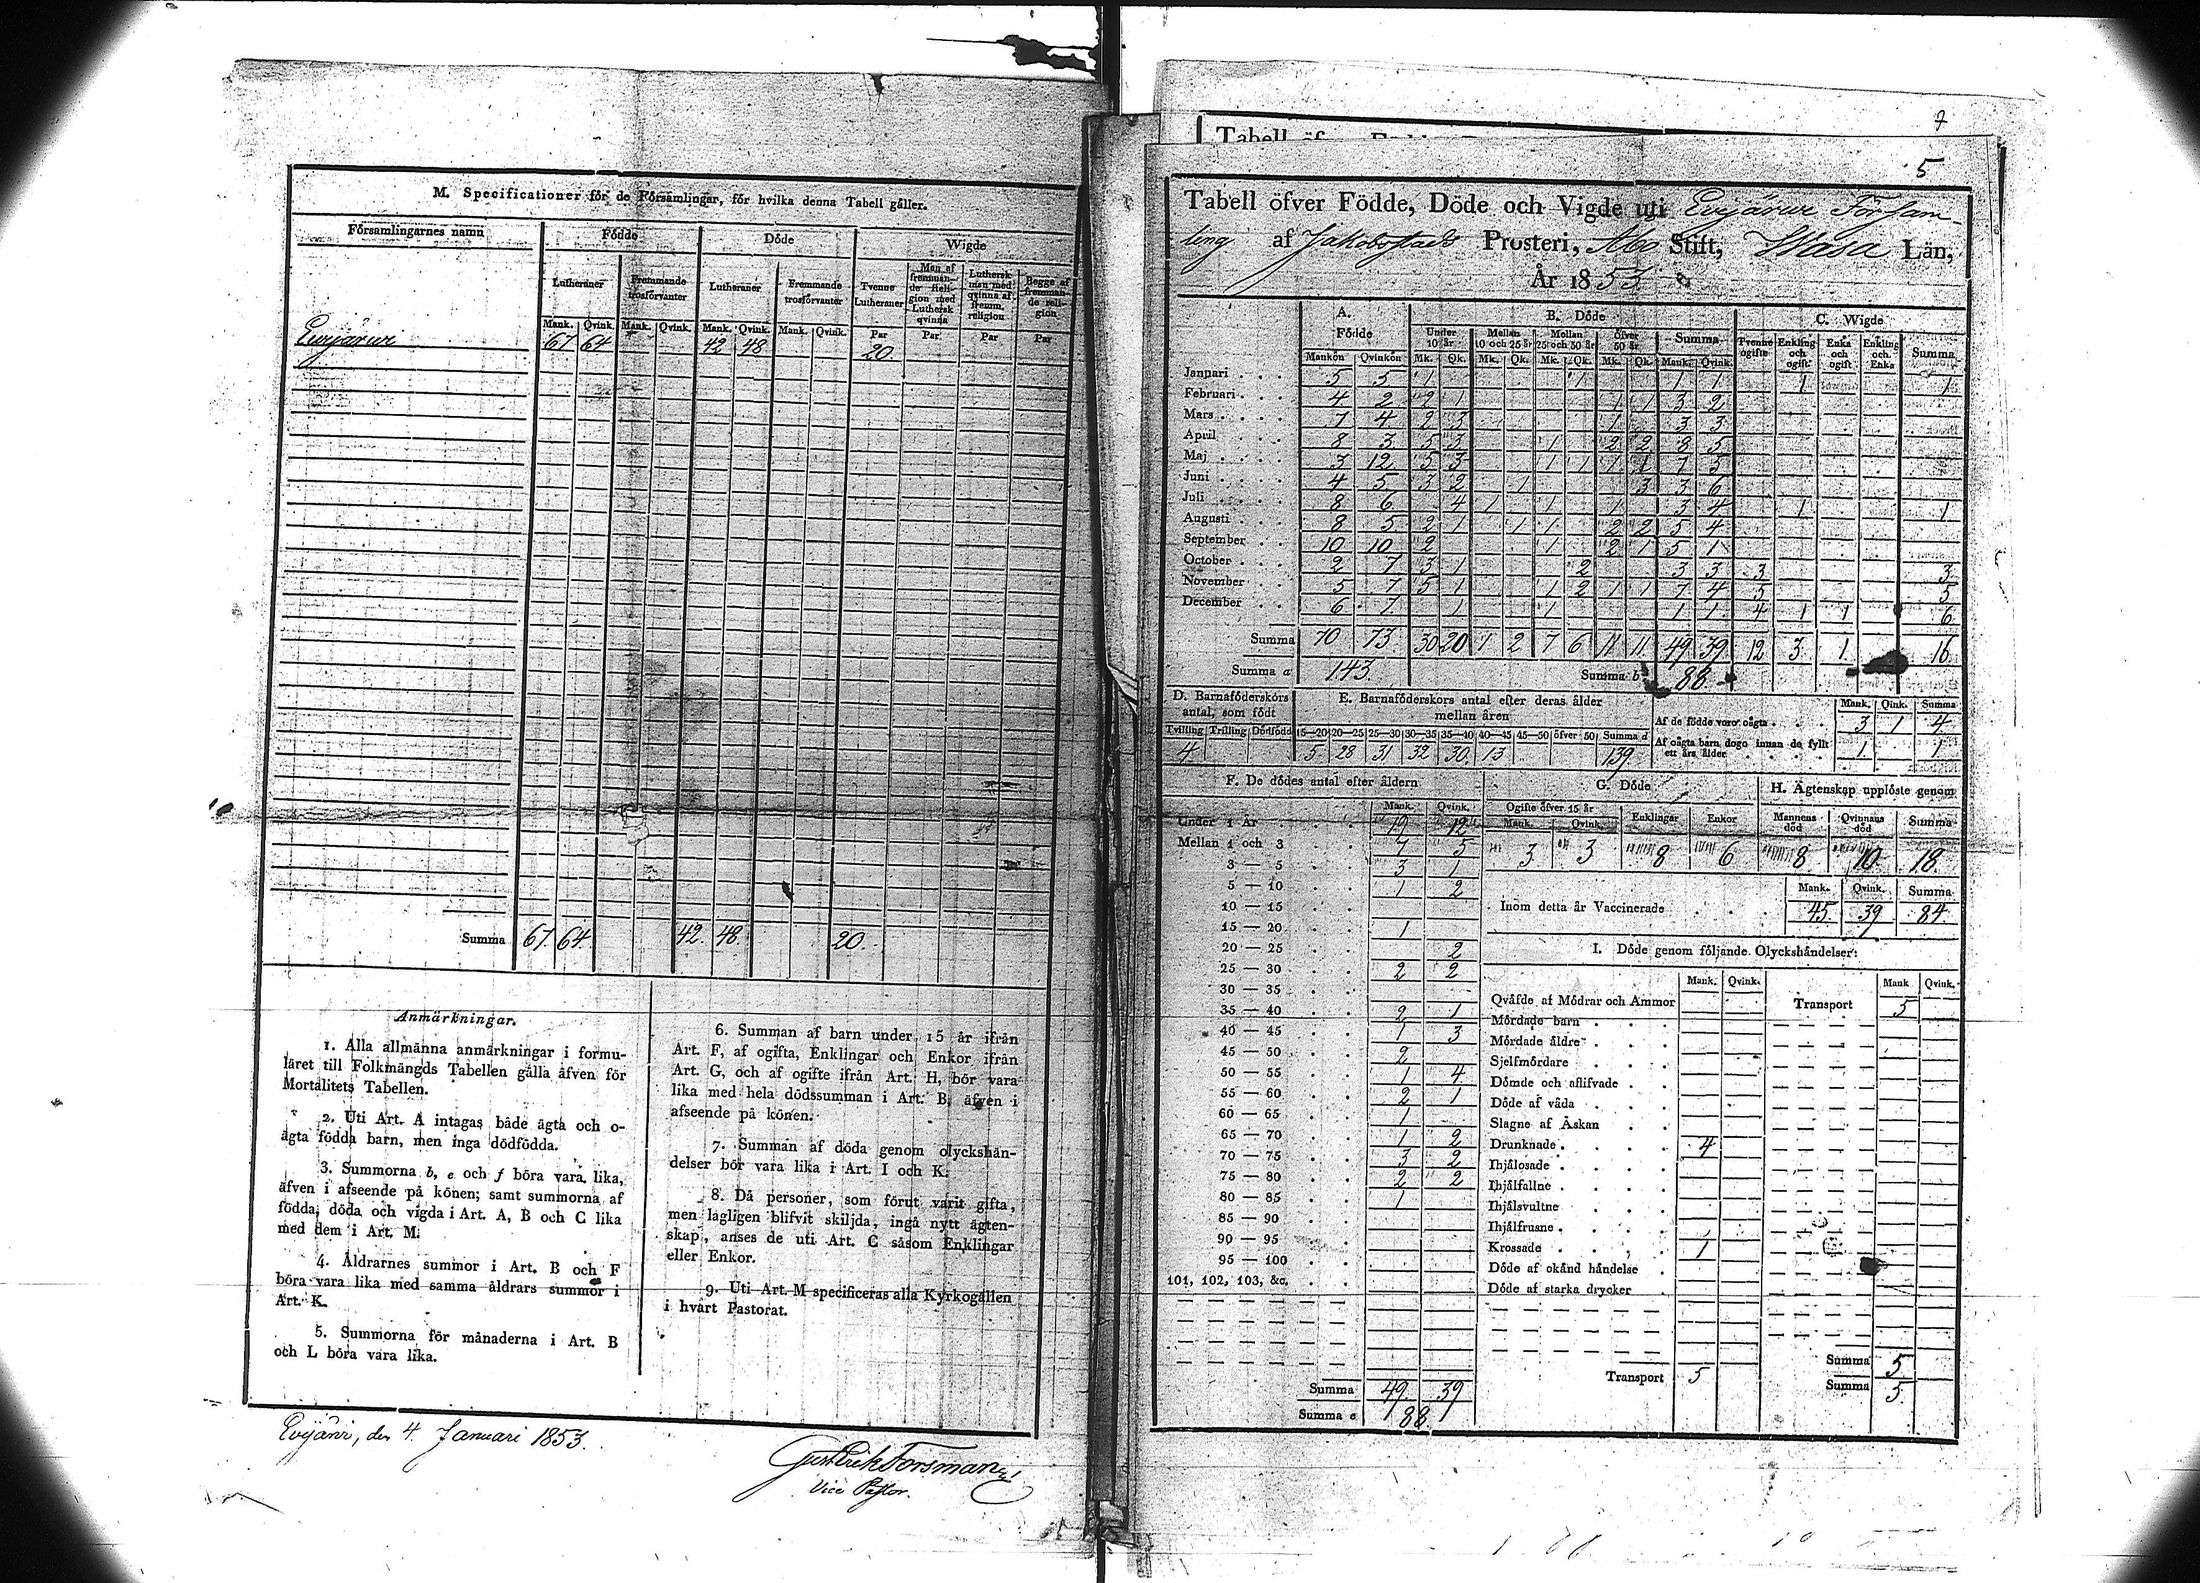 M. Specificationer för de Församlingar, för hvilka denna Tabell gäller.
Församlingarnes namn Födde Döde Wigde
Lutheraner Fremmande trosförvanter Lutheraner Fremmande trosförvanter Tvenne Lutheraner Man af fremmande Religion med Luthersk qvinna Luthersk man med qvinna af fremm. religion Begge af fremmande religion
Mank. Qvink. Mank. Qvink. Mank. Qvink. Mank. Qvink. Par Par Par Par
Evijärvi 67 64 42 48 20
Summa 67 64 42 48 20
Anmärkningar.
1. Alla allmänna anmärkningar i formu-
läret till Folkmängds Tabellen gälla äfven för
Mortalitets Tabellen.
2. Uti Art. A intagas både ägta och o-
ägta födda barn, men inga dödfödda.
3. Summorna b, e och f böra vara lika,
äfven i afseende på könen; samt summorna af
födda, döda och vigda i Art. A, B och C lika
med dem i Art. M.
4. Åldrarnes summor i Art. B och F
böra vara lika med samma åldrars summor i
Art. K.
5. Summorna för månaderna i Art. B
och L böra vara lika.
6. Summan af barn under 15 år ifrån
Art. F, af ogifta, Enklingar och Enkor ifrån
Art. G, och af ogifte ifrån Art. H, bör vara
lika med hela dödssumman i Art. B, äfven i
afseende på könen.
7. Summan af döda genom olyckshän-
delser bör vara lika i Art. I och K.
8. Då personer, som förut varit gifta,
men lagligen blifvit skiljda, ingå nytt ägten-
skap, anses de uti Art. C såsom Enklingar
eller Enkor.
9. Uti Art. M specificeras alla Kyrkogällen
i hvart Pastorat.
Evijärvi, den 4 Januari 1853.
Gust Erik Forsman
Vice Pastor.
7
5
Tabell öfver Födde, Döde och Vigde uti Evijärvi Försam-
ling af Jakobstads Prosteri, Åbo Stift, Wasa Län,
År 1853
A. Födde B. Döde C. Wigde
Under 10 år Mellan 10 och 25 år Mellan 25 och 50 år Öfver 50 år Summa Tvenne ogifte Enkling och ogift Enka och ogift Enkling och Enka Summa
Mankön Qvinkön Mk. Qk. Mk. Qk. Mk. Qk. Mk. Qk. Mank. Qvink.
Januari 5 5 1 1 1 1 1 1
Februari 4 2 2 1 1 1 3 2
Mars 7 4 2 3 1 3 3
April 8 3 5 3 1 2 2 8 5
Maj 3 12 5 3 1 1 1 1 7 5
Juni 4 5 3 2 1 3 3 6
Juli 8 6 4 1 1 1 3 4 1 1
Augusti 8 5 2 1 1 1 2 2 5 4
September 10 10 2 1 2 1 5 1
October 2 7 3 1 2 3 3 3 3
November 5 7 5 1 1 2 1 1 7 4 5 5
December 6 7 1 1 1 1 4 1 1 6
Summa 70 73 30 20 1 2 7 6 11 11 49 39 12 3 1 16
Summa a 143. Summa b 88
D. Barnaföderskors antal, som födt
Tvilling Trilling Dödfödd
4
E. Barnaföderskors antal efter deras ålder mellan åren
15—20 20—25 25—30 30—35 35—40 40—45 45—50 öfver 50 Summa d
5 28 31 32 30 13 139
Mank. Qink. Summa
Af de födde voro oägta 3 1 4
Af oägta barn dogo innan de fyllt ett års ålder 1 1
F. De dödes antal efter åldern
Mank. Qvink.
Under 1 År 19 12
Mellan 1 och 3 7 5
3 — 5 3 1
5 — 10 1 2
10 — 15
15 — 20 1
20 — 25 2
25 — 30 2 2
30 — 35
35 — 40 2 1
40 — 45 1 3
45 — 50 2
50 — 55 1 4
55 — 60 2 1
60 — 65 1
65 — 70 1 2
70 — 75 3 2
75 — 80 2 2
80 — 85 1
85 — 90
90 — 95
95 — 100
101, 102, 103, &c.
Summa 49. 39
Summa e 88
G. Döde
Ogifte öfver 15 år Enklingar Enkor
Mank. Qvink.
3 3 8 6
H. Ägtenskap upplöste genom
Mannens död Qvinnans död Summa
8 10 18
Mank. Qvink. Summa
Inom detta år Vaccinerade 45 39 84
I. Döde genom följande Olyckshändelser:
Mank. Qvink. Mank Qvink.
Qväfde af Mödrar och Ammor Transport 5
Mördade barn
Mördade äldre
Sjelfmördare
Dömde och aflifvade
Döde af våda
Slagne af Åskan
Drunknade 4
Ihjälosade
Ihjälfallne
Ihjälsvultne
Ihjälfrusne
Krossade 1
Döde af okänd händelse
Döde af starka drycker
Summa 5
Transport 5 Summa 5